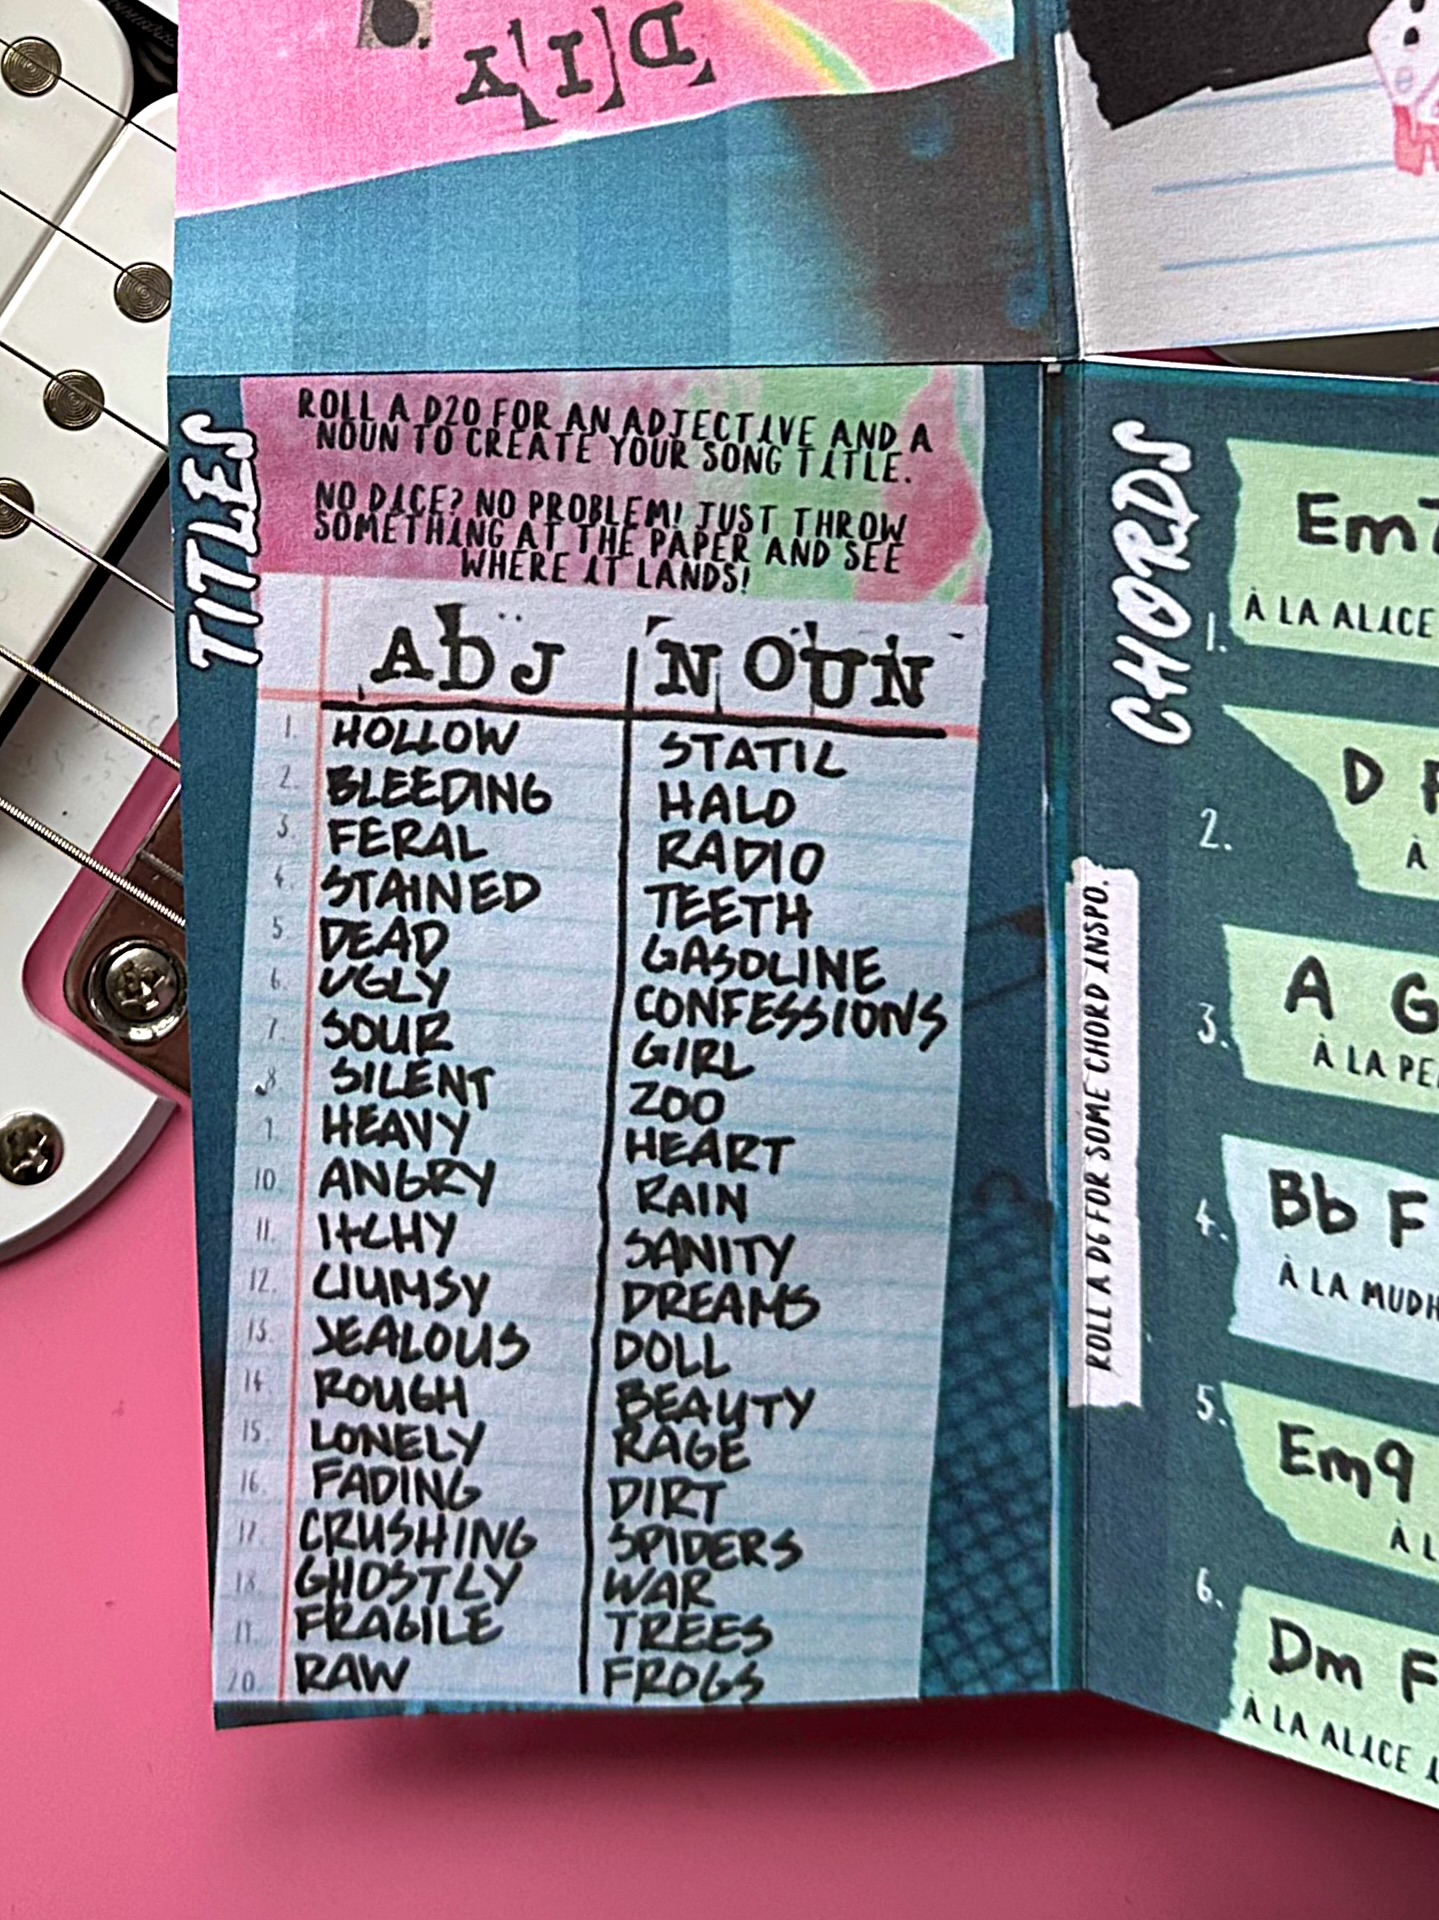 DIY
TITLES
ROLL A D20 FOR AN ADJECTIVE AND A
NOUN TO CREATE YOUR SONG TITLE.
NO DICE? NO PROBLEM! JUST THROW
SOMETHING AT THE PAPER AND SEE
WHERE IT LANDS!
ADJ NOUN
1. HOLLOW STATIC
2. BLEEDING HALO
3. FERAL RADIO
4. STAINED TEETH
5. DEAD GASOLINE
6. UGLY CONFESSIONS
7. SOUR GIRL
8. SILENT ZOO
9. HEAVY HEART
10. ANGRY RAIN
11. ITCHY SANITY
12. CLUMSY DREAMS
13. JEALOUS DOLL
14. ROUGH BEAUTY
15. LONELY RAGE
16. FADING DIRT
17. CRUSHING SPIDERS
18. GHOSTLY WAR
19. FRAGILE TREES
20. RAW FROGS
CHORDS
ROLL A D6 FOR SOME CHORD INSPO.
1. Em7
À LA ALICE
2. D
À
3. A G
À LA
4. Bb F
À LA
5. Em9
À
6. Dm F
À LA ALICE